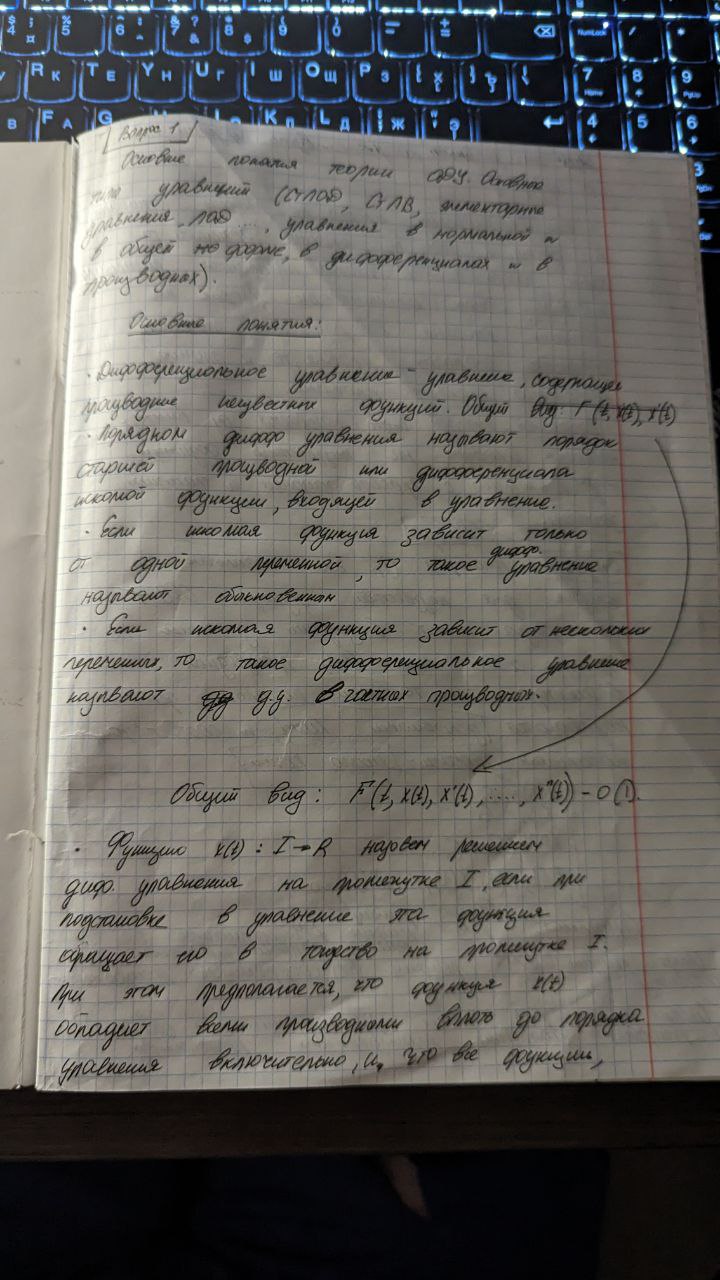 Вопрос 1
Основные понятия теории ОДУ. Основные
типы уравнений (СтЛОД, СтЛВ, элементарные
уравнения, ЛОД ...., уравнения в нормальной и
в общей не форме, в дифференциалах и в
производных).
Основные понятия:
· Дифференциальное уравнение - уравнение, содержащее
производные неизвестных функций. Общий вид: F(t, x(t), x'(t)
· Порядком дифф уравнения называют порядок
старшей производной или дифференциала
искомой функции, входящей в уравнение.
· Если искомая функция зависит только
от одной переменной, то такое дифф. уравнение
называют обыкновенным
· Если искомая функция зависит от нескольких
переменных, то такое дифференциальное уравнение
называют д.у. в частных производных.
Общий вид: F(t, x(t), x'(t), ...., xⁿ(t)) = 0 (1).
· Функцию x(t) : I → R назовем решением
диф. уравнения на промежутке I, если при
подстановке в уравнение эта функция
обращает его в тождество на промежутке I.
При этом предполагается, что функция x(t)
обладает всеми производными вплоть до порядка
уравнения включительно, и, что все функции,
$ 4 % 5 6 & 7 * 8 9 0 - = NumLock
R К T Е Y Н U Г I Ш O Щ P З [ Х ] Ъ 7 Home 8 9 PgUp
В F А G K Л L Д Ж Э 4 5 6
3 PgDn